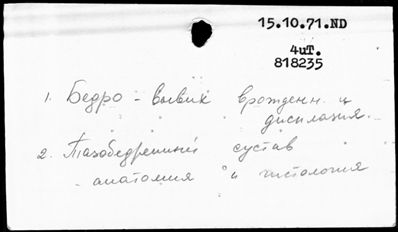 15.10.71.ND
4иТ.
818235
1. Бедро - вывих врожденн. и
дисплазия.
2. Тазобедренный сустав
- анатомия и гистология